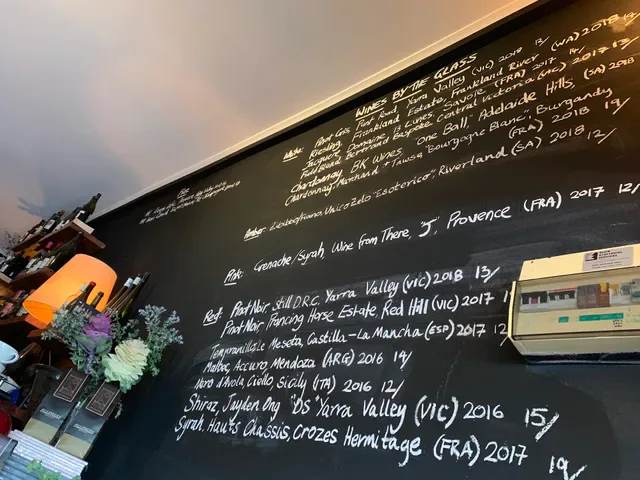 WINES BY THE GLASS
White: Pinot Gris, Punt Road, Yarra Valley (VIC) 2018 13/
Riesling, Frankland Estate, Frankland River (WA) 2018
Jacquere, Domaine 13 Lunes, Savoie (FRA) 2017 14/
Field Blend, Bertrand Bespoke, Central Victoria (VIC) 2017 13/
Chardonnay, BK Wines "One Ball", Adelaide Hills, (SA) 2018
Chardonnay, Marchand + Tawse "Bourgogne Blanc", Burgundy (FRA) 19/
Amber: Unico Zelo "Esoterico", Riverland (SA) 2018 12/
Pink: Grenache/Syrah, Wine from There, "J", Provence (FRA) 2017 12/
Red: Pinot Noir Still D.R.C. Yarra Valley (VIC) 2018 13/
Pinot Noir Prancing Horse Estate Red Hill (VIC) 2017
Tempranillo, La Meseta, Castilla-La Mancha (ESP) 2017
Malbec, Accuro, Mendoza (ARG) 2016 14/
Nero d'Avola, Ciello, Sicily (ITA) 2016 12/
Shiraz, Jayden Ong "DS" Yarra Valley (VIC) 2016 15/
Syrah, Hauts Chassis, Crozes Hermitage (FRA) 2017 19/